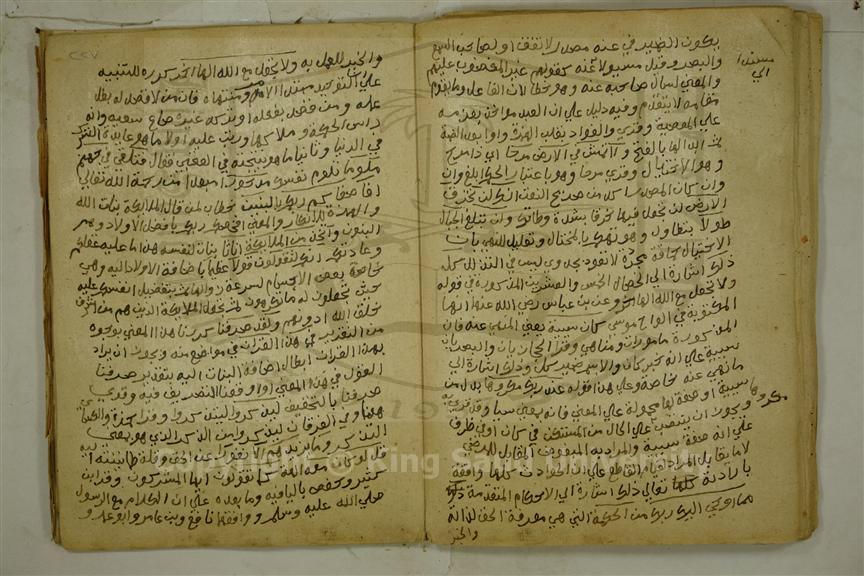 يكون الضمير في عنه مصدر لا تقف او لصاحب السمع
والبصر وقيل مسؤلا عنه كقولهم غير المغضوب عليهم
والمعنى يسأل صاحبه عنه وهو خطأ لان الفاعل وما يقوم
مقامه لا يتقدم وفيه دليل على ان العبد مواخذ بعزمه
على المعصية وقرئ والفواد بقلب الهمزة واوا بعد الضمة
ثم ابدالها بالفتح ولا تمش في الارض مرحا اي ذا مرح
وهو الاختيال وقرئ مرحا وهو باعتبار الحكم ابلغ وان
كان المصدر اكد من صريح النعت انك لن تخرق
الارض لن تجعل فيها خرقا بشدة وطاتك ولن تبلغ الجبال
طولا بتطاولك وهو تهكم بالمختال وتعليل للنهي بان
الاختيال حماقة مجردة لا تعود بجدوى ليس في التذلل كل
ذلك اشارة الى الخصال الخمس والعشرين المذكورة في قوله
ولا تجعل مع الله الها اخر وعن بن عباس رضي الله عنهما انها
المكتوبة في الواح موسى كان سيئه يعني المنهي عنه فان
المذكورة مامورات ومناهي وقرا الحجازيان والبصريان
سيئة على انه خبر كان والاسم ضمير كل وذلك اشارة الى
ما نهى عنه خاصة وعلى هذا قوله عند ربك مكروها بدل من
سيئة او صفة لها محمولة على المعنى فانه بمعنى سيا وقد قرئ به
ويجوز ان ينتصب على الحال من المستكن في كان او في الظرف
على انه صفة سيئة والمراد به المبغوض المقابل للمرضي
لا ما يقابل المراد لقيام القاطع على ان الحوادث كلها واقعة
بارادته تعالى ذلك اشارة الى الاحكام المتقدمة
مما اوحى اليك ربك من الحكمة التي هي معرفة الحق لذاته
والخير
مكروها
والخير للعمل به ولا تجعل مع الله الها اخر كرره للتنبيه
على ان التوحيد مبتدا الامر ومنتهاه فان من لا قصد له بطل
عمله ومن قصد بفعله او تركه غيره ضاع سعيه وانه
راس الحكمة وملاكها ورتب عليه اولا ما هو عايدة الشرك
في الدنيا وثانيا ما هو نتيجته في العقبى فقال فتلقى في جهنم
ملوما تلوم نفسك مدحورا مبعدا من رحمة الله تعالى
افاصفاكم ربكم بالبنين خطاب لمن قال الملايكة بنات الله
والهمزة للانكار والمعنى افخصكم ربكم بافضل الاولاد وهم
البنون واتخذ من الملايكة اناثا بنات لنفسه هذا خلاف ما عليه عقولكم
وعادتكم انكم لتقولون قولا عظيما باضافة الاولاد اليه وهي
خاصة بعض الاجسام لسرعة زوالها ثم بتفضيل انفسكم عليه
حيث تجعلون له ما تكرهون ثم بجعل الملايكة الذين هم من اشرف
خلق الله ادونهم ولقد صرفنا كررنا هذا المعنى بوجوه
من التقرير في هذا القران في مواضع منه ويجوز ان يراد
بهذا القران ابطال اضافة البنات اليه بتقدير صرفنا
القول في هذا المعنى او اوقعنا التصريف فيه وقرئ
صرفنا بالتخفيف ليذكروا ليتذكروا وقرا حمزة والكسائي
هنا وفي الفرقان ليذكروا من الذكر الذي هو بمعنى
التذكر وما يزيدهم الا نفورا عن الحق وقلة طمانينة اليه
قل لو كان معه الهة كما تقولون ايها المشركون وقرا بن
كثير وحفص بالياء فيه وما بعده على ان الكلام مع الرسول
صلى الله عليه وسلم ووافقهما نافع وبن عامر وابو عمرو